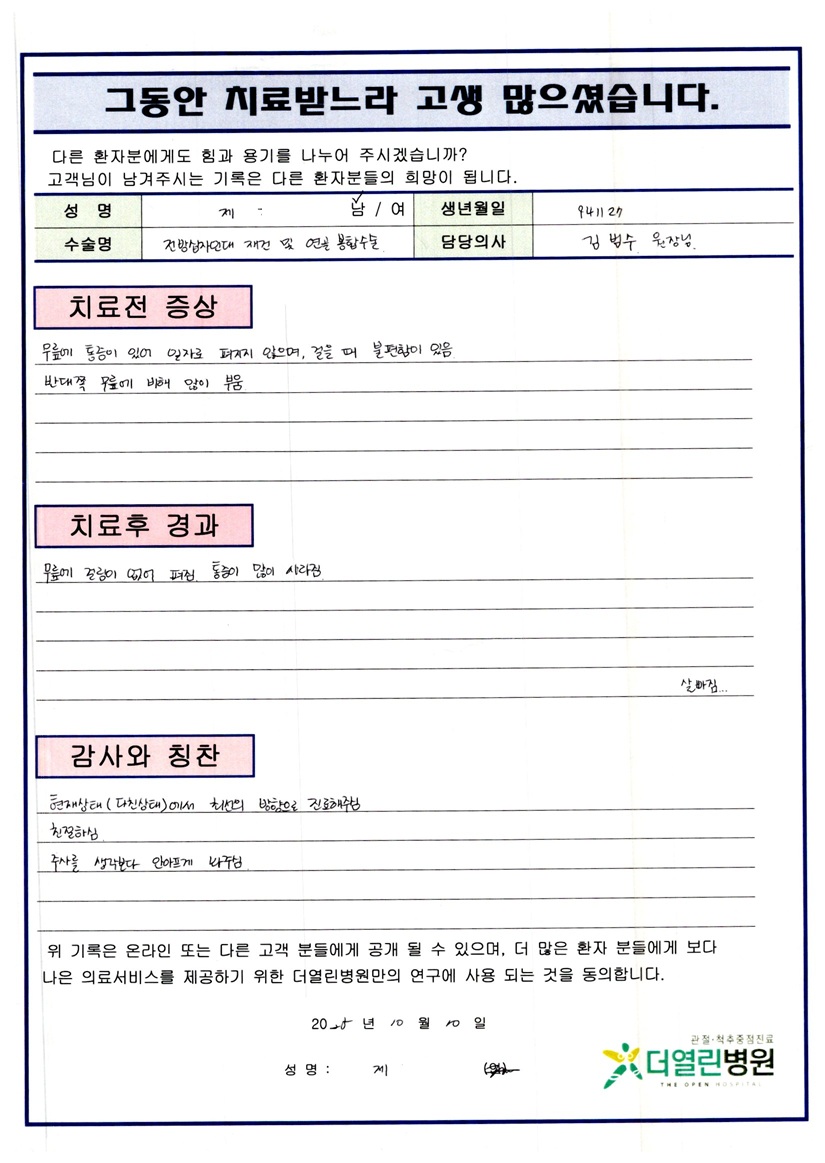 그동안 치료받느라 고생 많으셨습니다.
다른 환자분에게도 힘과 용기를 나누어 주시겠습니까?
고객님이 남겨주시는 기록은 다른 환자분들의 희망이 됩니다.
성 명 제 남 / 여 생년월일 941127
수술명 전방십자인대 재건 및 연골 봉합수술 담당의사 김범수 원장님.
치료전 증상
무릎에 통증이 있어 일자로 펴지지 않으며, 걸을 때 불편함이 있음
반대쪽 무릎에 비해 많이 부음
치료후 경과
무릎에 걸림이 없어 펴짐. 통증이 많이 사라짐
살빠짐...
감사와 칭찬
현재상태(다친상태)에서 최선의 방향으로 진료해주심
친절하심
주사를 생각보다 안아프게 놔주심
위 기록은 온라인 또는 다른 고객 분들에게 공개 될 수 있으며, 더 많은 환자 분들에게 보다
나은 의료서비스를 제공하기 위한 더열린병원만의 연구에 사용 되는 것을 동의합니다.
2025 년 10 월 10 일
성 명 : 제
관절·척추중점진료
더열린병원
THE OPEN HOSPITAL